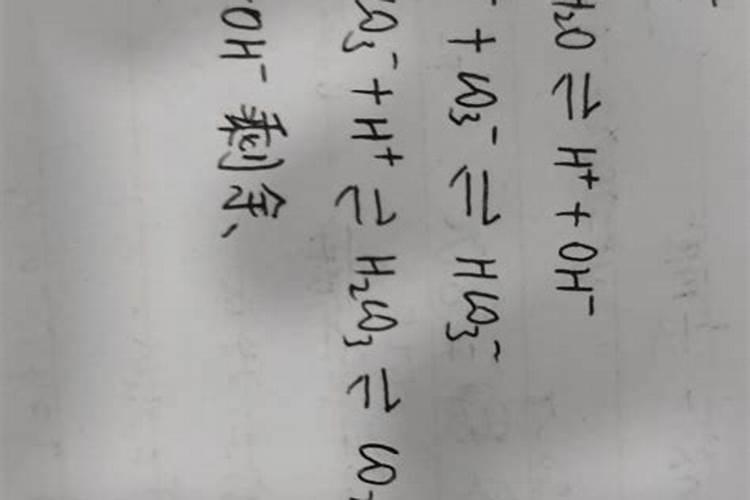 H₂O ⇌ H⁺ + OH⁻
+ CO₃⁻ ⇌ HCO₃⁻
CO₃⁻ + H⁺ ⇌ H₂CO₃ ⇌ CO
OH⁻ 剩余、